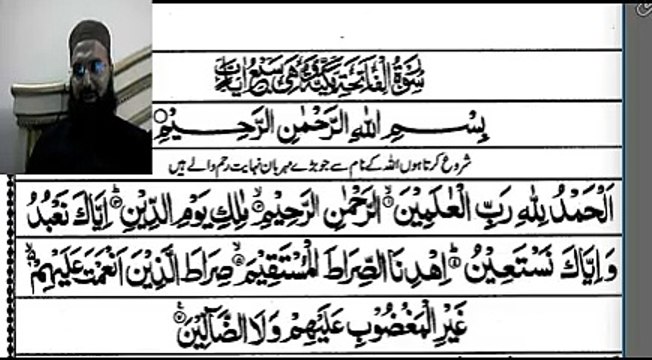 سُوْرَةُ الْفَاتِحَةِ مَكِّيَّةٌ وَّهِيَ سَبْعُ اٰيَاتٍ
بِسْمِ اللّٰهِ الرَّحْمٰنِ الرَّحِيْمِ
شروع کرتا ہوں اللہ کے نام سے جو بڑے مہربان نہایت رحم والے ہیں
اَلْحَمْدُ لِلّٰهِ رَبِّ الْعٰلَمِيْنَ ۙ۝۱ الرَّحْمٰنِ الرَّحِيْمِ ۙ۝۲ مٰلِكِ يَوْمِ الدِّيْنِ ؕ۝۳ اِيَّاكَ نَعْبُدُ
وَاِيَّاكَ نَسْتَعِيْنُ ؕ۝۴ اِهْدِنَا الصِّرَاطَ الْمُسْتَقِيْمَ ۙ۝۵ صِرَاطَ الَّذِيْنَ اَنْعَمْتَ عَلَيْهِمْ ۙ۝۶
غَيْرِ الْمَغْضُوْبِ عَلَيْهِمْ وَلَا الضَّآلِّيْنَ ۝۷